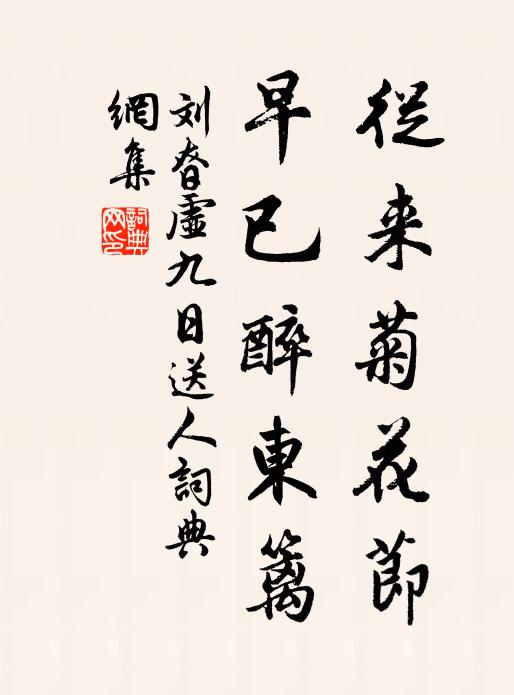 從来菊花莭
早已醉東籬
刘眘虛九日送人詞典
網集
詞典網印